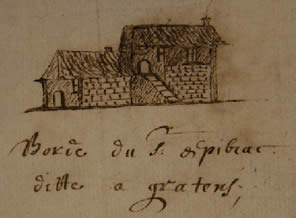 Borde du Sr. de pibrac
ditte a gratens